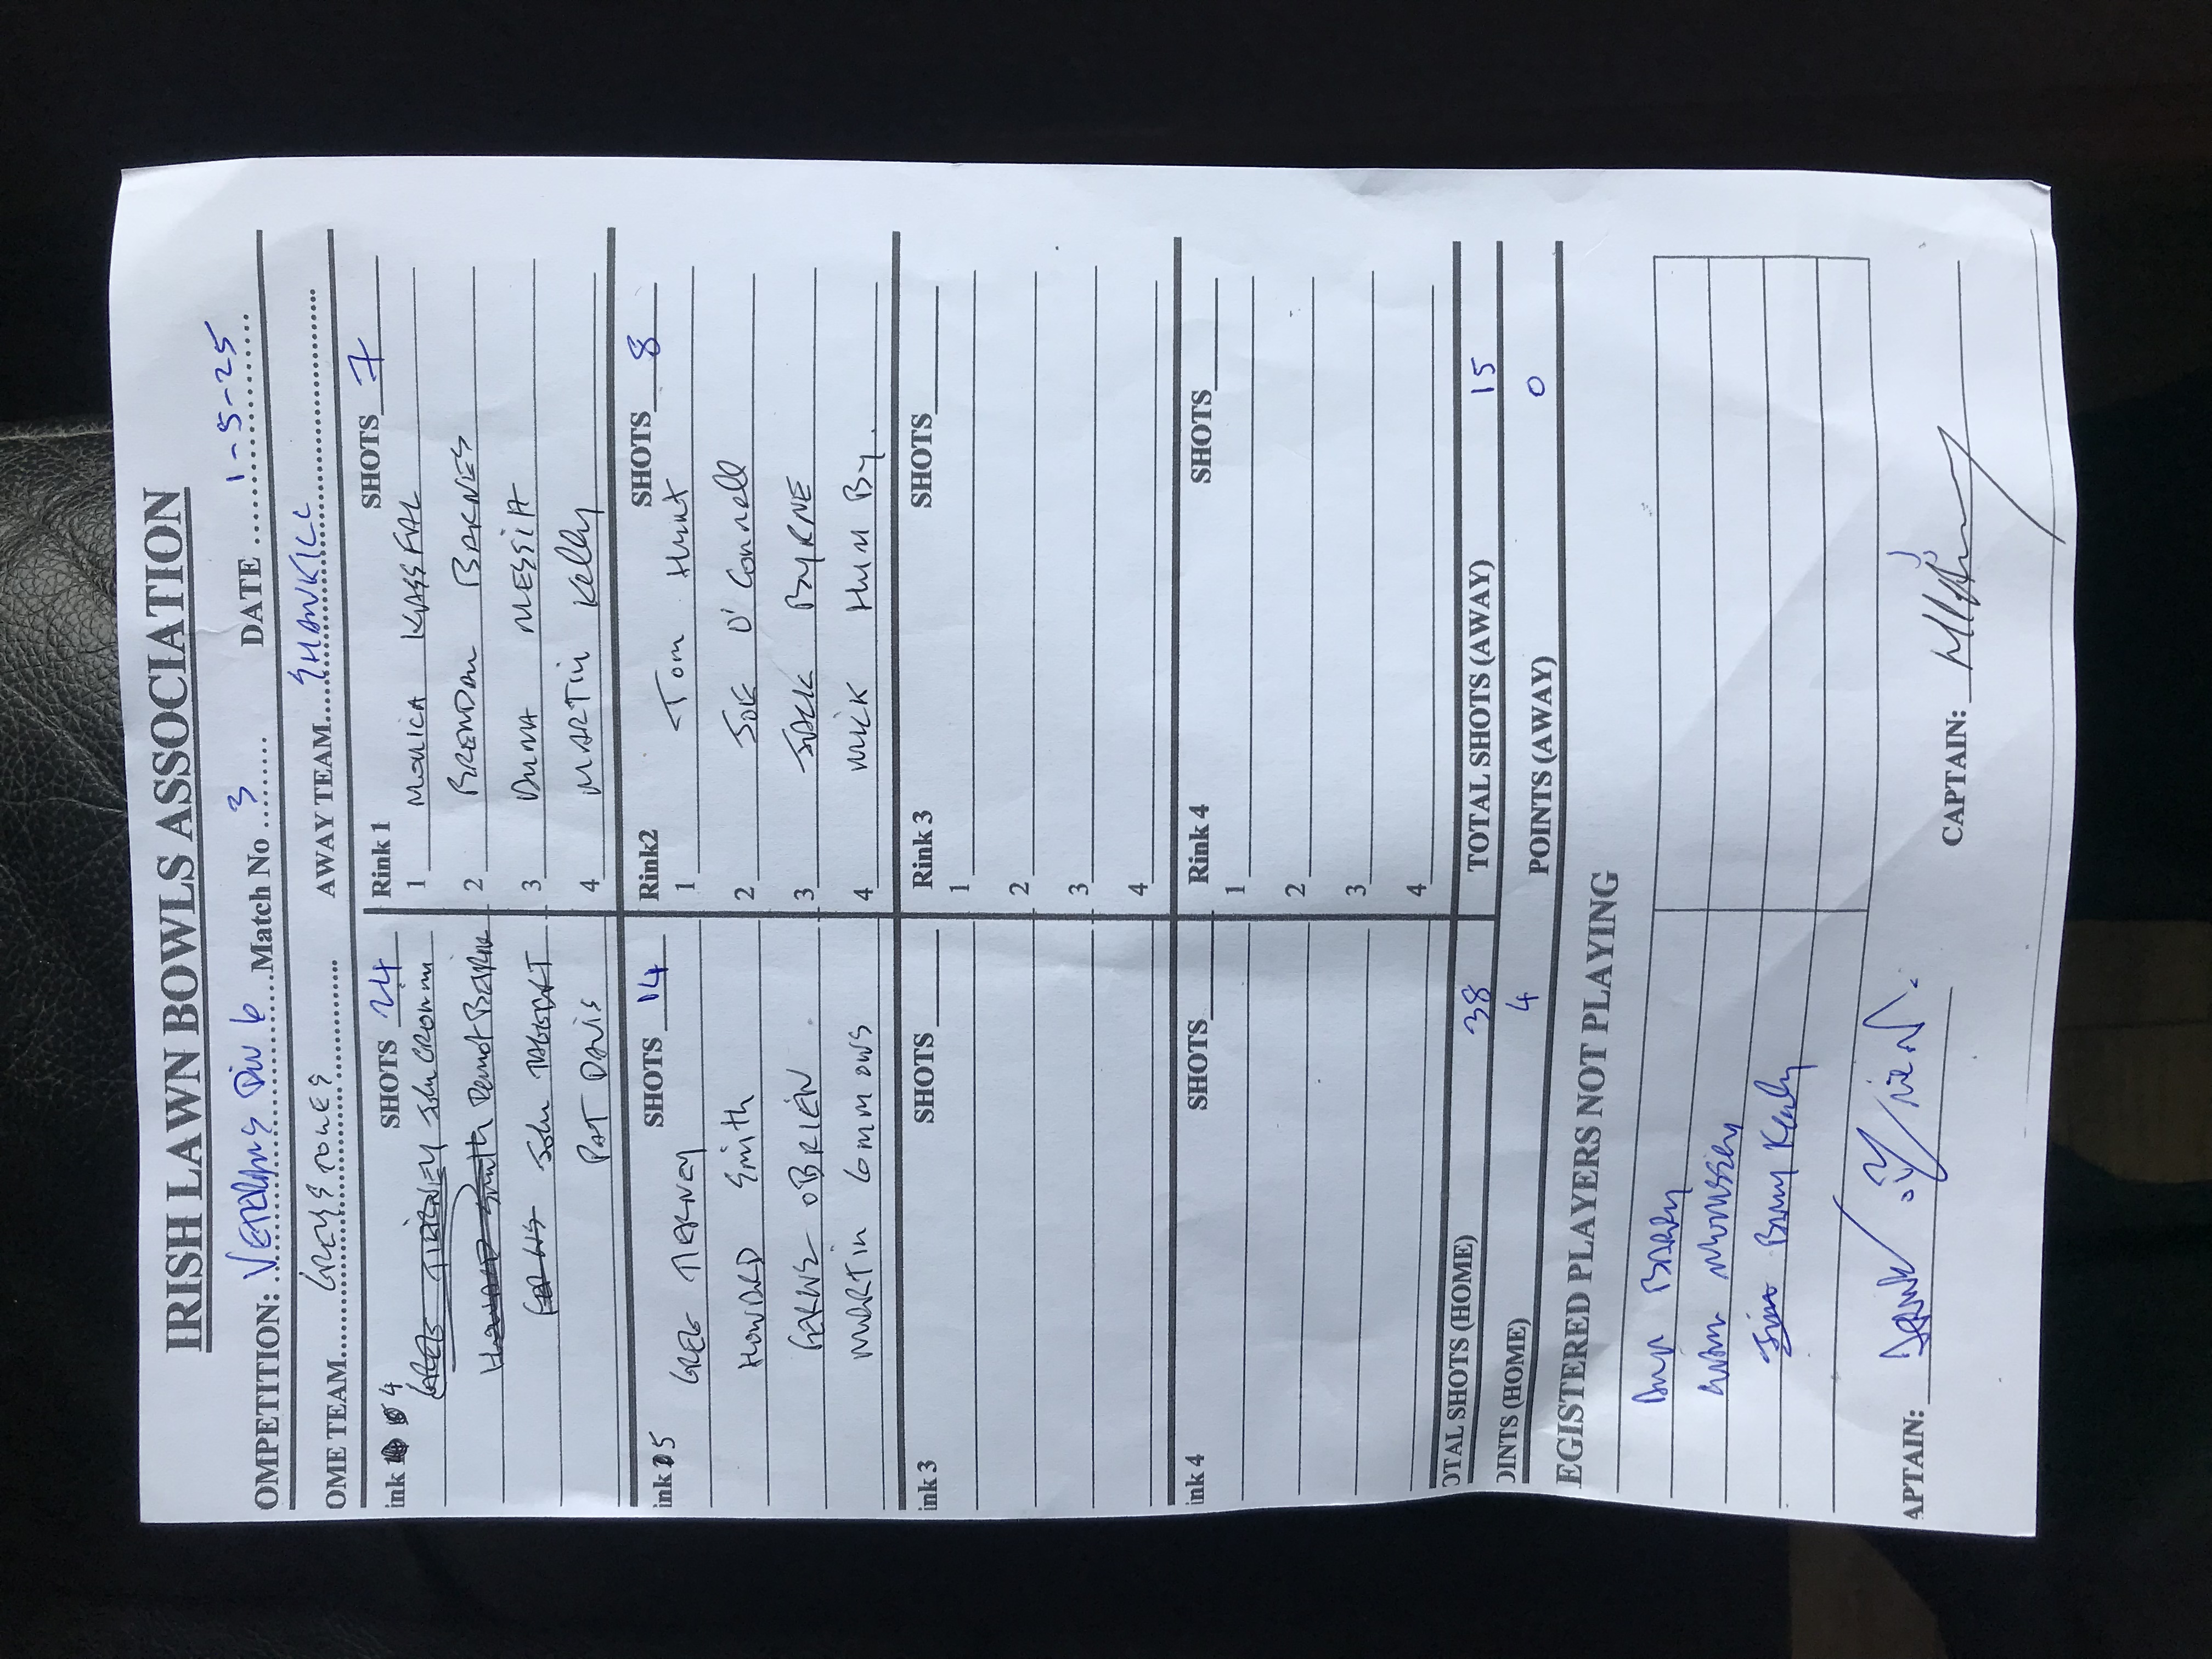 IRISH LAWN BOWLS ASSOCIATION
OMPETITION: VETERANS DIV 6 Match No 3 DATE 1-5-25
OME TEAM GREYSTONES AWAY TEAM SHANKILL
ink 4 SHOTS 24 Rink 1 SHOTS 7
GREG TIERNEY John CRONIN 1 MONICA
HOWARD Smith Dermot 2 BRENDAN BARNES
John 3 MESSITT
PAT DAVIS 4 MARTIN Kelly
ink 5 SHOTS 14 Rink2 SHOTS 8
GREG TIERNEY 1 Tom Hunt
HOWARD Smith 2 JOE O'Connell
OBRIEN 3 JACK BYRNE
MARTIN COMMONS 4 MICK HUMBY.
ink 3 SHOTS Rink 3 SHOTS
1
2
3
4
ink 4 SHOTS Rink 4 SHOTS
1
2
3
4
OTAL SHOTS (HOME) 38 TOTAL SHOTS (AWAY) 15
OINTS (HOME) 4 POINTS (AWAY) 0
EGISTERED PLAYERS NOT PLAYING
BARRY
APTAIN: CAPTAIN: